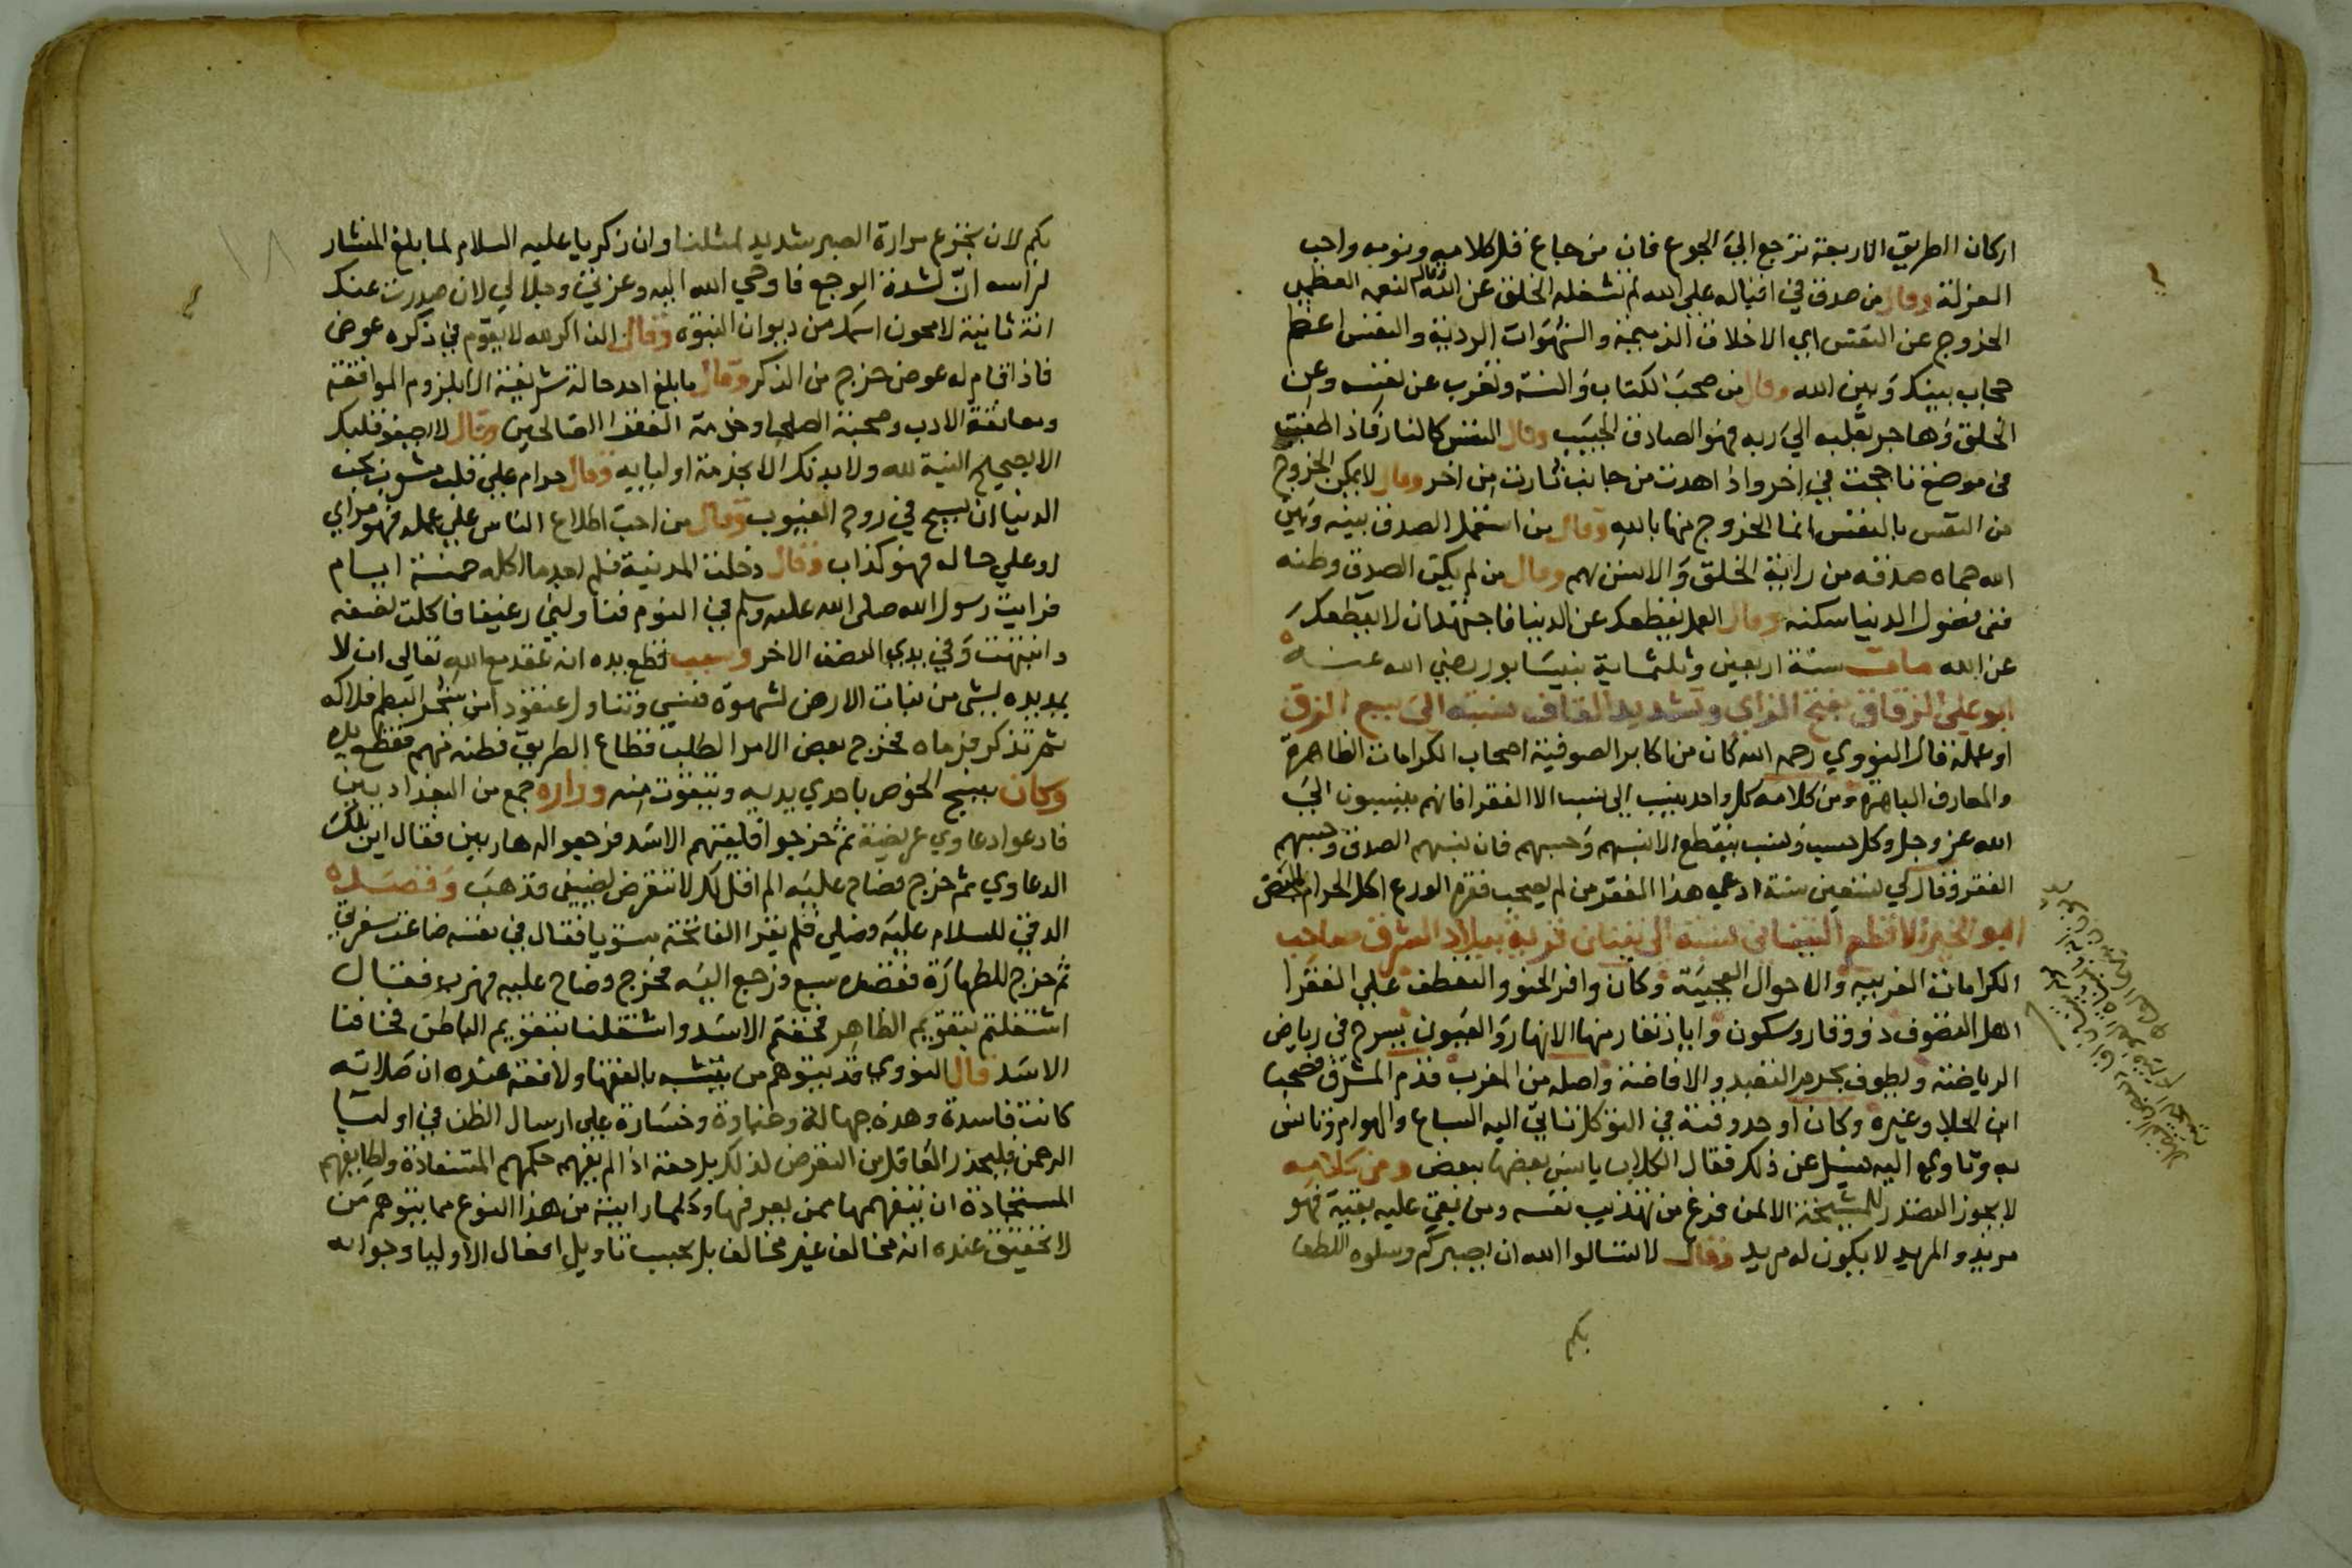 اركان الطريق الاربعة ترجع الي الجوع فان من جاع قل كلامه ونومه واحب
العزلة وقال من صدق في اقباله علي الله لم تشغله الخلق عن الله وقال النعمة العظمي
الخروج عن النفس اي الاخلاق الذميمة والشهوات الردية والنفس اعظم
حجاب بينك وبين الله وقال من صحب الكتاب والسنة وتغرب عن نفسه وعن
الخلق وهاجر بقلبه الي ربه فهو الصادق المصيب وقال النفس كالنار فاذا اطفيت
في موضع تاججت في اخر واذا هدت من جانب ثارت من اخر وقال لا يمكن الخروج
من النفس بالنفس انما الخروج منها بالله وقال من استعمل الصدق بينه وبين
الله حماه صدقه من راية الخلق والانس بهم وقال من لم يكن الصدق وطنه
ففي فضول الدنيا سكنه وقال العلم يقطعك عن الدنيا فاجتهد ان لا يقطعك
عن الله مات سنة اربعين وثلثماية بنيسابور رضي الله عنه
ابو علي الزقاق بفتح الزاي وتشديد القاف نسبة الي بيع الزق
او عمله قال النووي رحمه الله كان من اكابر الصوفية اصحاب الكرامات الظاهرة
والمعارف الباهرة ومن كلامه كل واحد ينسب الي نسب الا الفقرا فانهم ينسبون الي
الله عز وجل وكل حسب ونسب ينقطع الا نسبهم وحسبهم فان نسبهم الصدق وحسبهم
الفقر وقال لي تسعين سنة ادعي هذا الفقر من لم يصحب فقره الورع اكل الحرام المحض
ابو الخير الاقطع التيناتي نسبة الي تينات قرية ببلاد المشرق صاحب
الكرامات الغريبه والاحوال العجيبة وكان وافر الحنو والتعطف علي الفقرا
اهل التصوف ذو وقار وسكون وايادي تغار منها الانهار والعيون يسرح في رياض
الرياضة ويطوف بحرم التعبد والافاضة واصله من المغرب قدم المشرق فصحب
ابن الجلا وغيره وكان اوحد وقته في التوكل تاتي اليه السباع والهوام وتانس
به وتاوي اليه فسيل عن ذلك فقال الكلاب يانس بعضها ببعض ومن كلامه
لا يجوز التصدر للمشيخة الا لمن فرغ من تهذيب نفسه ومن بقي عليه بقية فهو
مريد والمريد لا يكون له مريد وقال لا تسالوا الله ان يصبركم وسلوه اللطف
بكم لان تجرع مرارة الصبر شديد لمثلنا وان زكريا عليه السلام لما بلغ المنشار
لراسه انّ لشدة الوجع فاوحي الله اليه وعزتي وجلالي لان صدرت عنك
انة ثانية لامحون اسمك من ديوان النبوة وقال الذاكر لله لا يقوم في ذكره عوض
فاذا قام له عوض خرج من الذكر وقال ما بلغ احد حالة شريفة الا بلزوم الموافقة
ومعانقة الادب وصحبة الصلحا وخدمة الفقرا الصالحين وقال لا يصفو قلبك
الا بصحيح النية لله ولا بدنك الا بخدمة اوليايه وقال حرام علي قلب مشوب بحب
الدنيا ان يسيح في روح الغيوب وقال من احب اطلاع الناس علي عمله فهو مراي
او علي حاله فهو كذاب وقال دخلت المدينة فلم اجد ما اكله خمسة ايام
فرايت رسول الله صلى الله عليه وسلم في النوم فناولني رغيفا فاكلت نصفه
وانتبهت وفي يدي النصف الاخر وسبب قطع يده انه عقد مع الله تعالي ان لا
يمد يده لشي من نبات الارض لشهوة فنسي وتناول عنقودا من شجر البطم فلاكه
ثم تذكر فرماه فخرج بعض الامرا لطلب قطاع الطريق فظنه منهم فقطع يده
وكان ينسج الخوص باحدي يديه ويتقوت منه وزاره جمع من البغداديين
فادعوا دعاوي عريضة ثم خرجوا فلقيهم الاسد فرجعوا له هاربين فقال اين تلك
الدعاوي ثم خرج فصاح عليه الم اقل لك لا تتعرض لضيفي فذهب وقصده
الدقي للسلام عليه وصلي فلم يقرا الفاتحة سويا فقال في نفسه ضاعت سفرتي
ثم خرج للطهارة فقصده سبع فرجع اليه فخرج وصاح عليه فهرب فقال
اشتغلتم بتقويم الظاهر فخفتم الاسد واشتغلنا بتقويم الباطن فخافنا
الاسد قال النووي قد يتوهم من يتشبه بالفقها ولا فقه عنده ان صلاته
كانت فاسدة وهذه جهالة وغباوة وخسارة علي ارسال الظن في اوليا
الرحمن فليحذر العاقل من التعرض لذلك بل حقه اذا لم يفهم حكمهم المستفادة ولطايفهم
المستجادة ان يتفهمها ممن يعرفها وكلما رايته من هذا النوع مما يتوهم من
لا تحقيق عنده انه مخالف غير مخالف بل يجب تاويل افعال الاوليا وجوابه